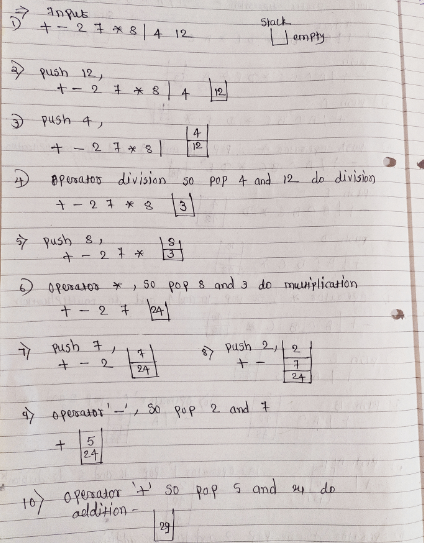 ⇒ Input
1) + - 2 7 * 8 / 4 12
Stack
empty
2) push 12,
+ - 2 7 * 8 / 4
12
3) push 4,
4
+ - 2 7 * 8 /
12
4) operator division so pop 4 and 12 do division
+ - 2 7 * 8
3
5) push 8,
+ - 2 7 *
8
3
6) operator *, so pop 8 and 3 do multiplication
+ - 2 7
24
7) push 7,
+ - 2
7
24
8) push 2,
+ -
2
7
24
9) operator '-', so pop 2 and 7
+
5
24
10) operator '+' so pop 5 and 24 do
addition -
29